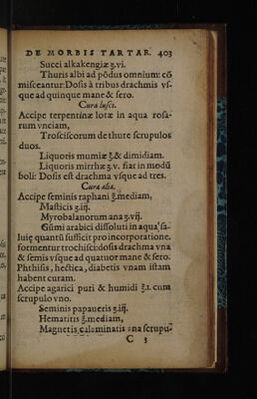 DE MORBIS TARTAR. 403
Succi alkakengiæ ʒ.vj.
Thuris albi ad põdus omnium: cõ
misceantur: Dosis à tribus drachmis vs-
que ad quinque mane & sero.
Cura
Accipe terpentinæ lotæ in aqua rosa-
rum vnciam,
Trosciscorum de thure scrupulos
duos.
Liquoris mumiæ ʒ.& dimidiam.
Liquoris mirrhæ ʒ.v. fiat in modũ
boli: Dosis est drachma vsque ad tres.
Cura alia.
Accipe seminis raphani ℥.mediam,
Masticis ʒ.iij.
Myrobalanorum ana ʒ.vij.
Gũmi arabici dissoluti in aqua sa-
luię quantũ sufficit pro incorporatione.
formentur trochisci: dosis drachma vna
& semis vsque ad quatuor mane & sero.
Phthisis, hectica, diabetis vnam istam
habent curam.
Accipe agarici puti & humidi ℥.1. cum
scrupulo vno.
Seminis papaueris ʒ.iij.
Hematitis ℥.mediam,
Magnetis calaminatis ana scrupu-
C 3